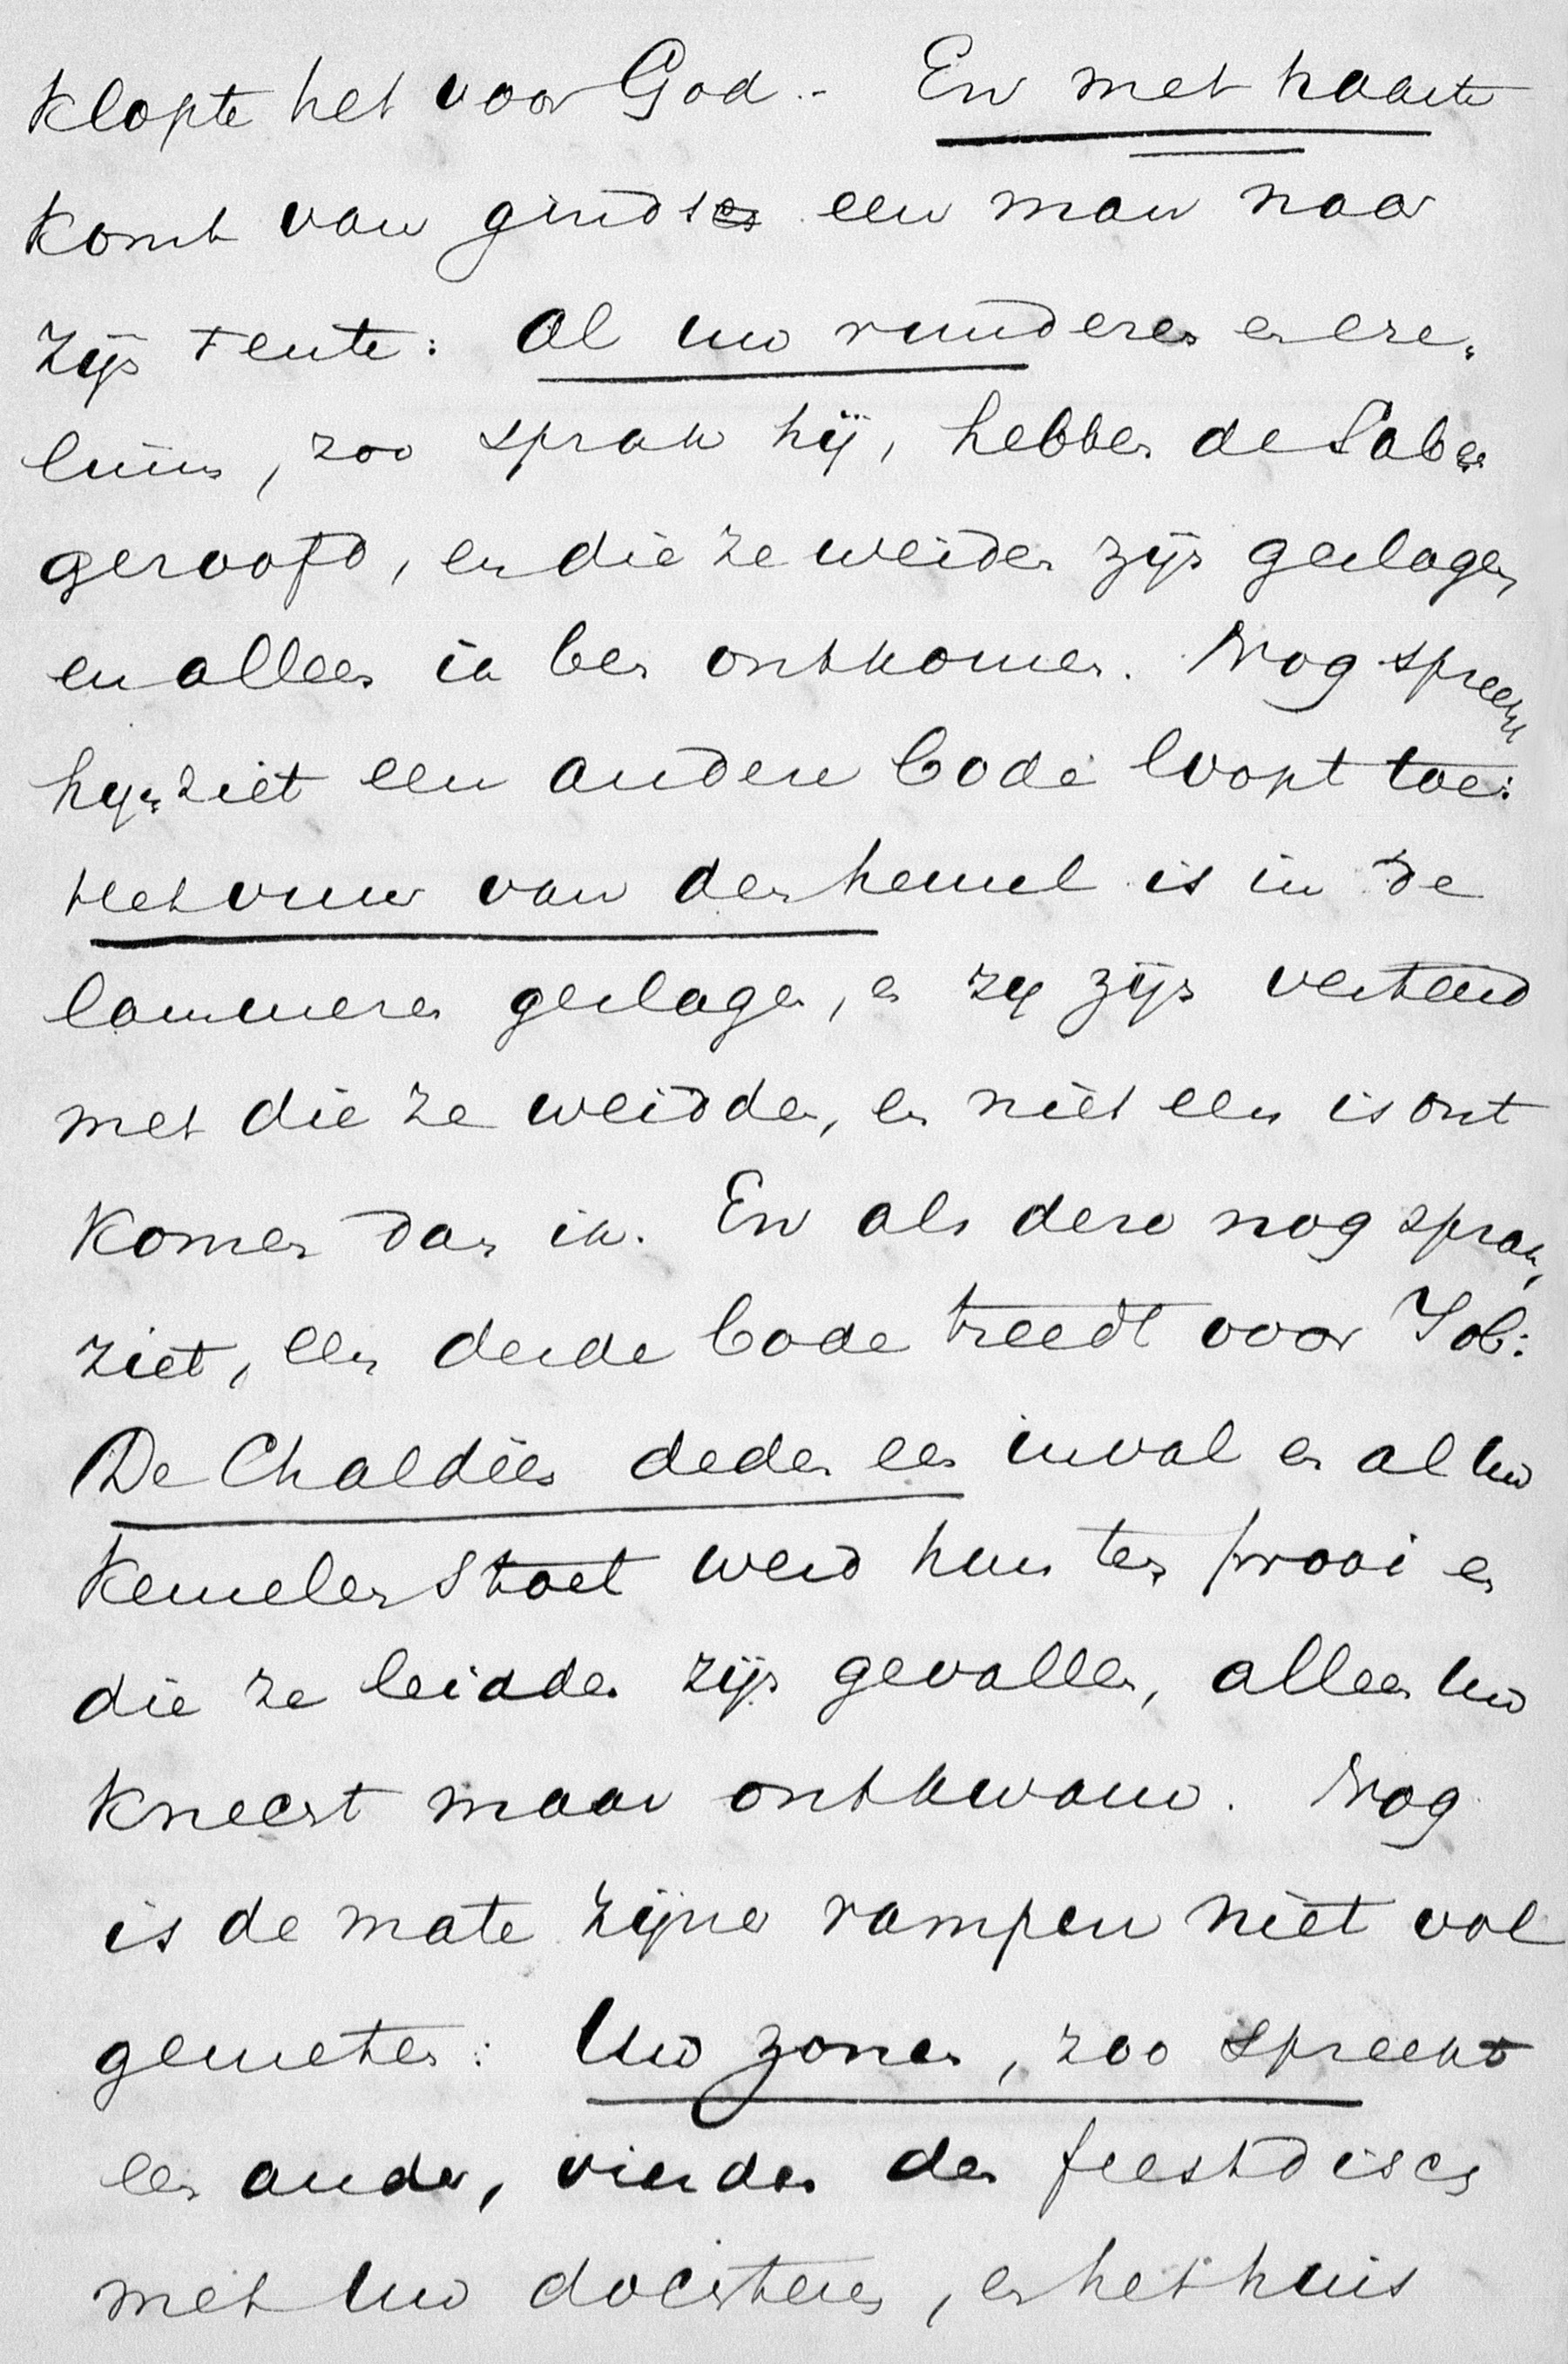 klopte het voor God. - En met haaste
komt van ginds een man naar
zijn tente: Al uw runderen en eze-
linnen, zoo sprak hij, hebben de Sabeën
geroofd, en die ze weiden zijn geslagen
en alleen ik ben ontkomen. Nog spreekt
hij, ziet een andere bode loopt toe:
Het vuur van den hemel is in de
lammeren geslagen, en zij zijn verteerd
met die ze weidden, en niet een is ont
komen dan ik. En als deze nog sprak,
ziet, een derde bode treedt voor Job:
De Chaldeën deden een inval en al uw
kemelen stoet werd hun ten prooi en
die ze leidden zijn gevallen, alleen uw
knecht maar ontkwam. Nog
is de mate zijner rampen niet vol
gemeten: Uw zonen, zoo spreekt
een ander, vierden den feestdisch
met uw dochteren, en het huis